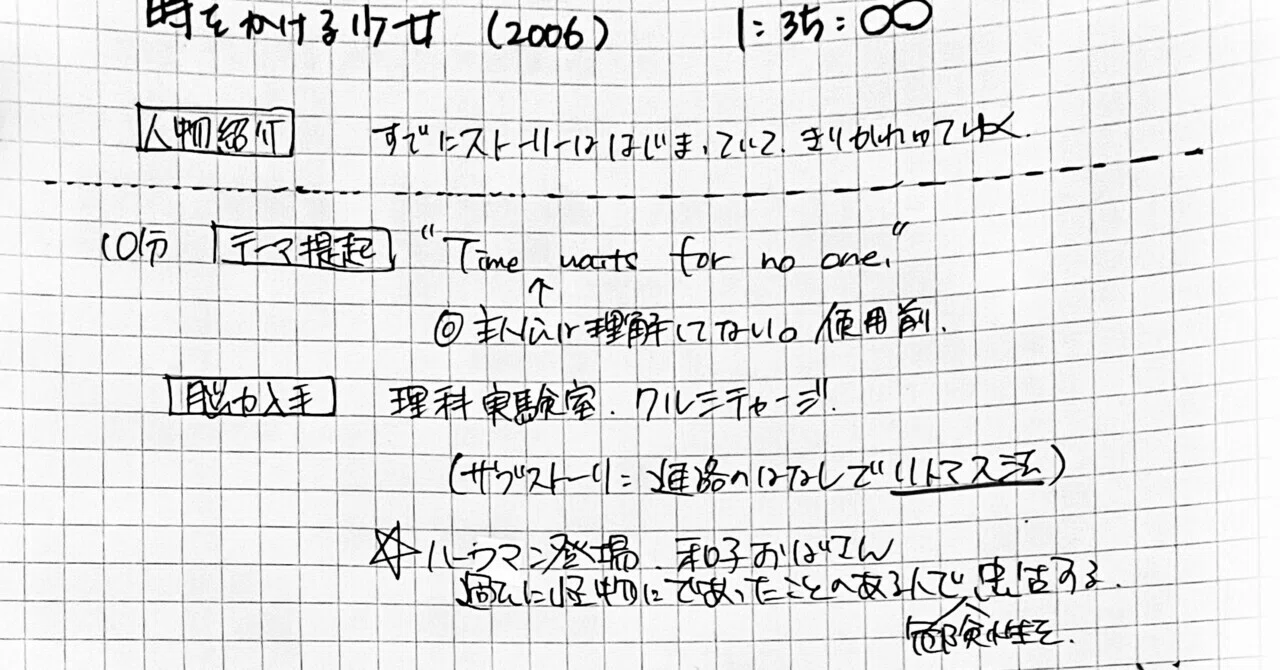 時をかける少女 (2006) 1:35:00
人物紹介 すでにストーリーははじまっていて、きりかわってゆく.
10分 テーマ提起 "Time waits for no one."
↑
◎主人公は理解してない。使用前.
能力入手 理科実験室. クルミチャージ.
(サブストーリー: 進路のはなしでリトマス法)
☆ハラマン登場. 和子おばさん
過去に怪物にであったことのある人で、忠告する.
冒険性を.